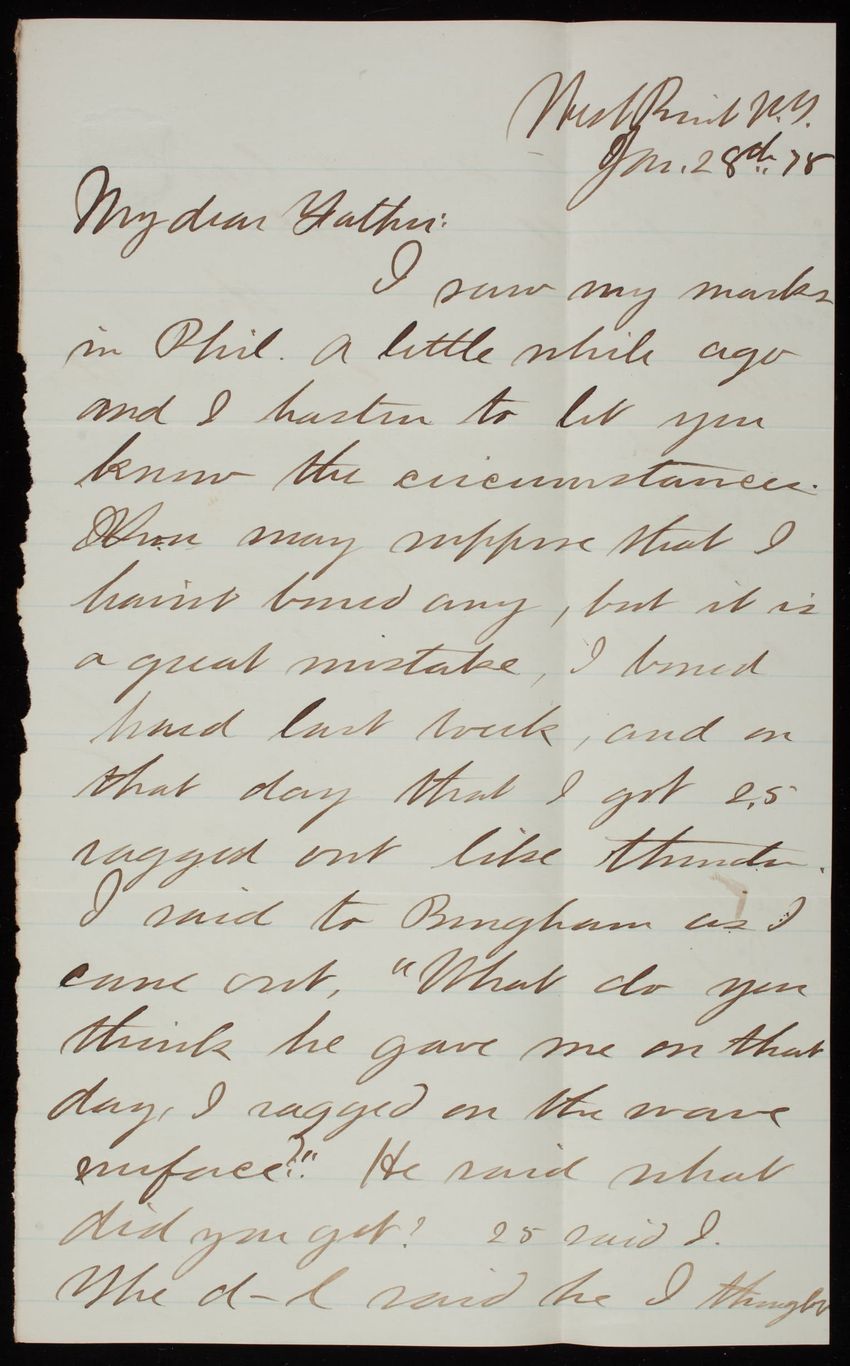 West Point N.Y.
Jan. 28th 78
My dear Father:
I saw my marks
in Phil. a little while ago
and I hasten to let you
know the circumstances.
You may suppose that I
haint boned any, but it is
a great mistake, I boned
hard last week, and on
that day that I got 2.5
ragged out like thunder.
I said to Bingham as I
came out, "What do you
think he gave me on that
day, I ragged on the wave
surface?" He said what
did you get? 25 said I.
The d-l said he I thought